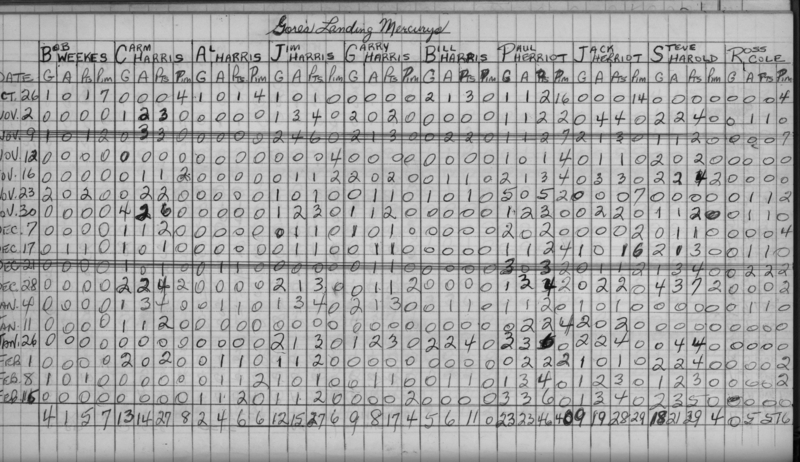 Gore's Landing Mercurys
BOB WEEKES CARM HARRIS AL HARRIS JIM HARRIS GARRY HARRIS BILL HARRIS PAUL HERRIOT JACK HERRIOT STEVE HAROLD ROSS COLE
DATE G A Pts Pim G A Pts Pim G A Pts Pim G A Pts Pim G A Pts Pim G A Pts Pim G A Pts Pim G A Pts Pim G A Pts Pim G A Pts Pim
OCT. 26 1 0 1 7 0 0 0 4 1 0 1 4 1 0 1 0 0 0 0 0 2 1 3 0 1 1 2 16 0 0 0 14 0 0 0 0 0 0 0 4
NOV. 2 0 0 0 0 1 2 3 0 0 0 0 0 1 3 4 0 2 0 2 0 0 0 0 0 1 1 2 2 0 4 4 0 2 2 4 0 0 1 1 0
NOV. 9 1 0 1 2 0 3 3 0 0 0 0 0 2 4 6 0 2 1 3 0 0 2 2 0 1 1 2 7 2 1 3 0 1 1 2 0 0 0 0
NOV. 12 0 0 0 0 0 0 0 0 0 0 0 0 0 0 0 4 0 0 0 0 0 0 0 0 1 0 1 4 0 1 1 0 2 0 2 0 0 0 0 0
NOV. 16 0 0 0 0 0 1 1 2 0 0 0 0 0 1 1 2 2 0 2 0 0 1 1 0 2 1 3 4 0 3 3 0 2 2 4 2 0 0 0 0
NOV. 23 2 0 2 0 0 2 2 0 0 0 0 0 1 0 1 0 0 1 1 0 1 0 1 0 5 0 5 2 0 0 0 7 0 0 0 0 0 1 1 2
NOV. 30 0 0 0 0 4 2 6 0 0 0 0 0 1 2 3 0 1 1 2 0 0 0 0 0 1 2 3 0 0 2 2 0 1 1 2 0 0 1 1 0
DEC. 7 0 0 0 0 1 1 2 0 0 0 0 0 0 1 1 0 1 0 1 0 0 0 0 0 2 0 2 0 0 0 0 2 0 1 1 0 0 0 0 4
DEC. 17 0 1 1 0 1 0 1 0 0 0 0 0 0 1 1 0 0 1 1 0 0 0 0 0 1 1 2 4 1 0 1 6 2 1 3 0 0 1 1 0
DEC 21 0 0 0 0 1 0 1 0 0 1 1 0 0 0 0 0 0 1 1 0 0 0 0 0 3 0 3 2 0 1 1 2 1 3 4 0 0 2 2 2
DEC. 28 0 0 0 0 2 2 4 2 0 0 0 0 2 1 3 0 0 1 1 2 0 0 0 0 1 3 4 2 0 2 2 0 4 3 7 2 0 0 0 2
JAN. 4 0 0 0 0 1 3 4 0 0 1 1 0 1 3 4 0 2 1 3 0 0 1 1 0 1 1 2 0 1 0 1 0 0 0 0 0 0 1 1 0
JAN. 11 0 0 0 0 1 1 2 0 0 0 0 0 0 0 0 0 0 0 0 0 0 0 0 0 0 2 2 4 2 0 2 0 0 0 0 0 0 0 0 0
JAN. 26 0 0 0 0 0 0 0 0 0 0 0 0 2 1 3 0 1 2 3 0 2 2 4 0 3 3 6 0 2 2 4 0 0 4 4 0 0 0 0 0
FEB. 1 0 0 0 0 2 0 2 0 0 1 1 0 1 1 2 0 0 0 0 0 0 0 0 0 0 2 2 2 1 0 1 0 2 2 4 0 0 0 0 2
FEB. 8 1 0 1 0 0 0 0 0 0 1 1 2 1 0 1 0 0 1 1 0 0 1 1 0 1 3 4 0 1 2 3 0 1 2 3 0 0 0 0 2
FEB. 15 0 0 0 0 0 0 0 0 1 1 2 0 1 1 2 0 0 0 0 2 0 0 0 0 3 3 6 0 1 3 4 0 2 3 5 0 0 0 0 0
4 1 5 7 13 14 27 8 2 4 6 6 12 15 27 6 9 8 17 4 5 6 11 0 23 23 46 40 9 19 28 29 18 21 39 4 0 5 5 16